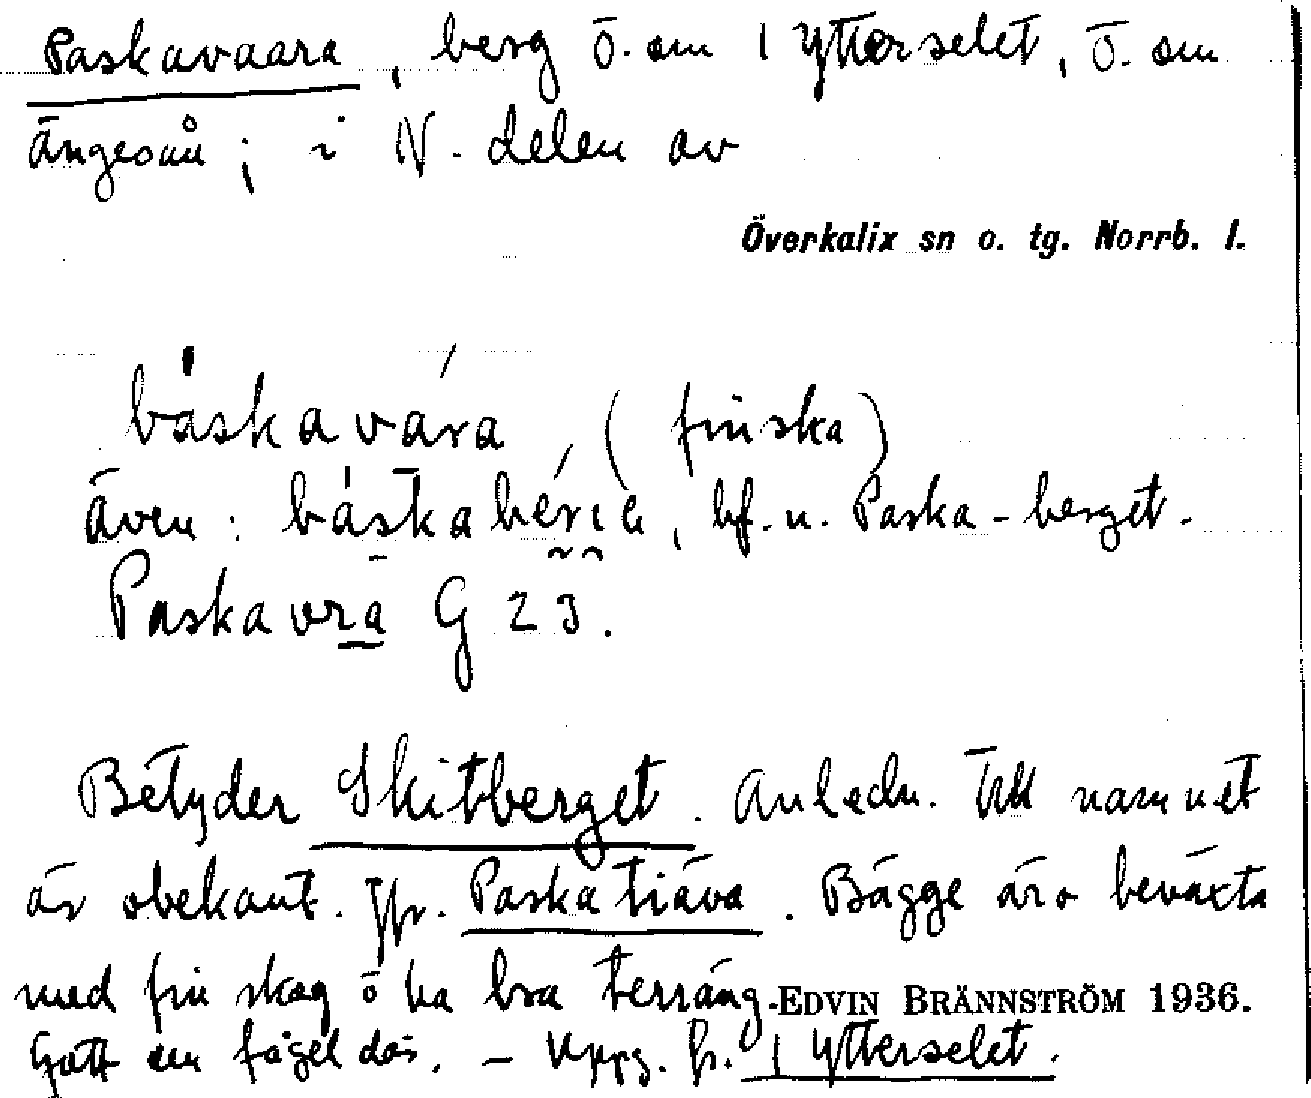 Paskavaara, berg ö. om 1 Ytterselet, ö. om
Ängesån; i N. delen av
Överkalix sn o. tg. Norrb. l.
báskavára, (finska)
även: báskabérie, bf. u. Paska-berget.
Paskavra G 23.
Betyder Skitberget. Anledn. till namnet
är obekant. Jfr. Paskatiäva. Bägge äro beväxta
med fin skog o ha bra terräng. EDVIN BRÄNNSTRÖM 1936.
Gott om fågel där. – Uppg. fr. 1 Ytterselet.